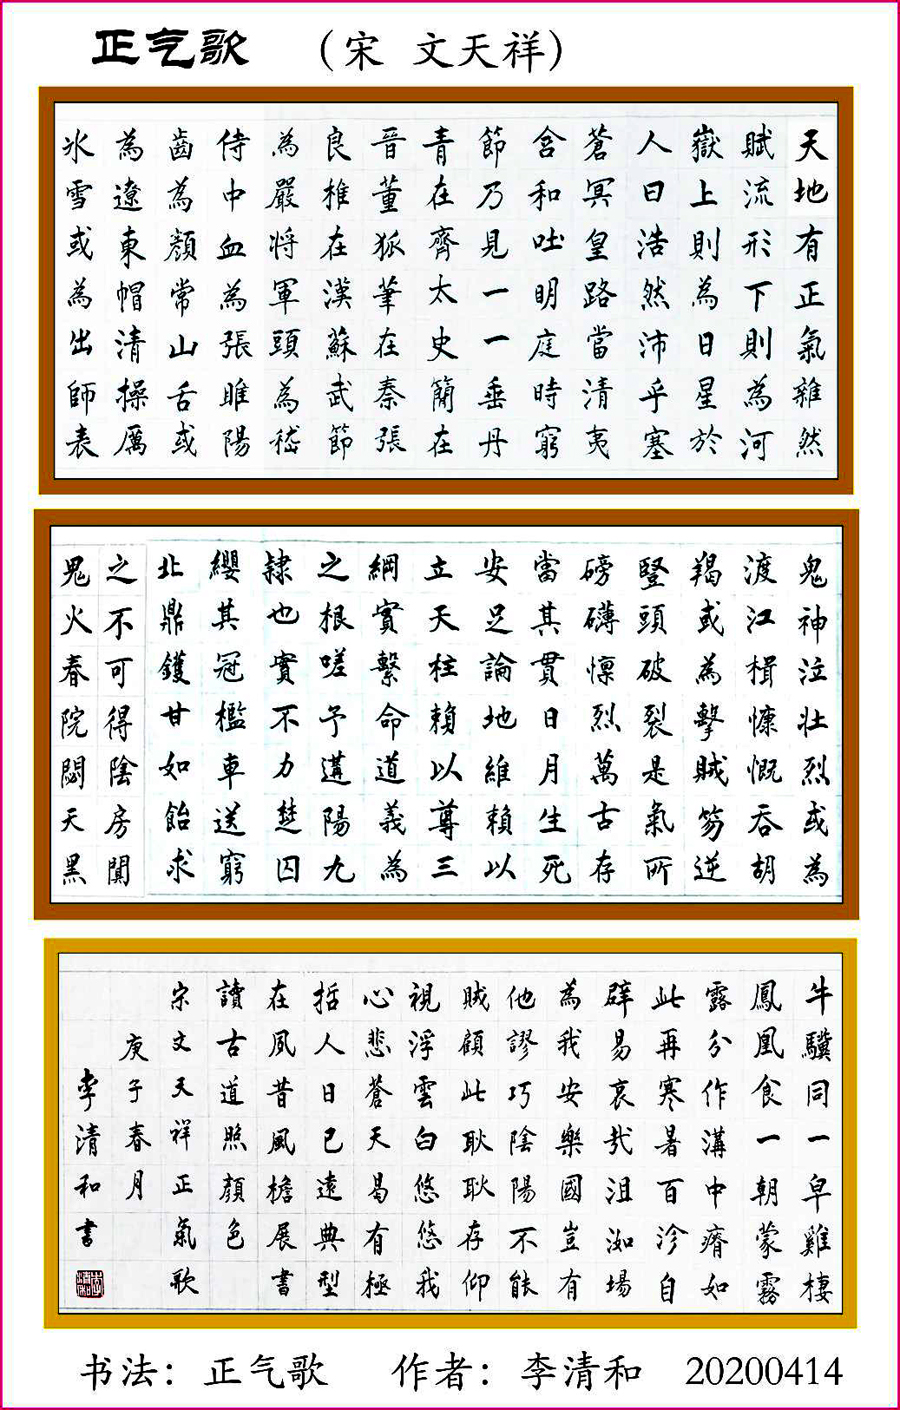 正气歌 （宋 文天祥）
天地有正氣雜然
賦流形下則為河
嶽上則為日星於
人曰浩然沛乎塞
蒼冥皇路當清夷
含和吐明庭時窮
節乃見一一垂丹
青在齊太史簡在
晉董狐筆在秦張
良椎在漢蘇武節
為嚴將軍頭為嵇
侍中血為張睢陽
齒為顏常山舌或
為遼東帽清操厲
氷雪或為出師表
鬼神泣壯烈或為
渡江楫慷慨吞胡
羯或為擊賊笏逆
豎頭破裂是氣所
磅礴懍烈萬古存
當其貫日月生死
安足論地維賴以
立天柱賴以尊三
綱實繫命道義為
之根嗟予遘陽九
隸也實不力楚囚
纓其冠檻車送窮
北鼎鑊甘如飴求
之不可得陰房闃
鬼火春院閟天黑
牛驥同一皁雞棲
鳳凰食一朝蒙霧
露分作溝中瘠如
此再寒暑百沴自
辟易哀哉沮洳場
為我安樂國豈有
他謬巧陰陽不能
賊顧此耿耿存仰
視浮雲白悠悠我
心悲蒼天曷有極
哲人日已遠典型
在夙昔風檐展書
讀古道照顏色
宋文天祥正氣歌
庚子春月
李清和書
书法：正气歌 作者：李清和 20200414